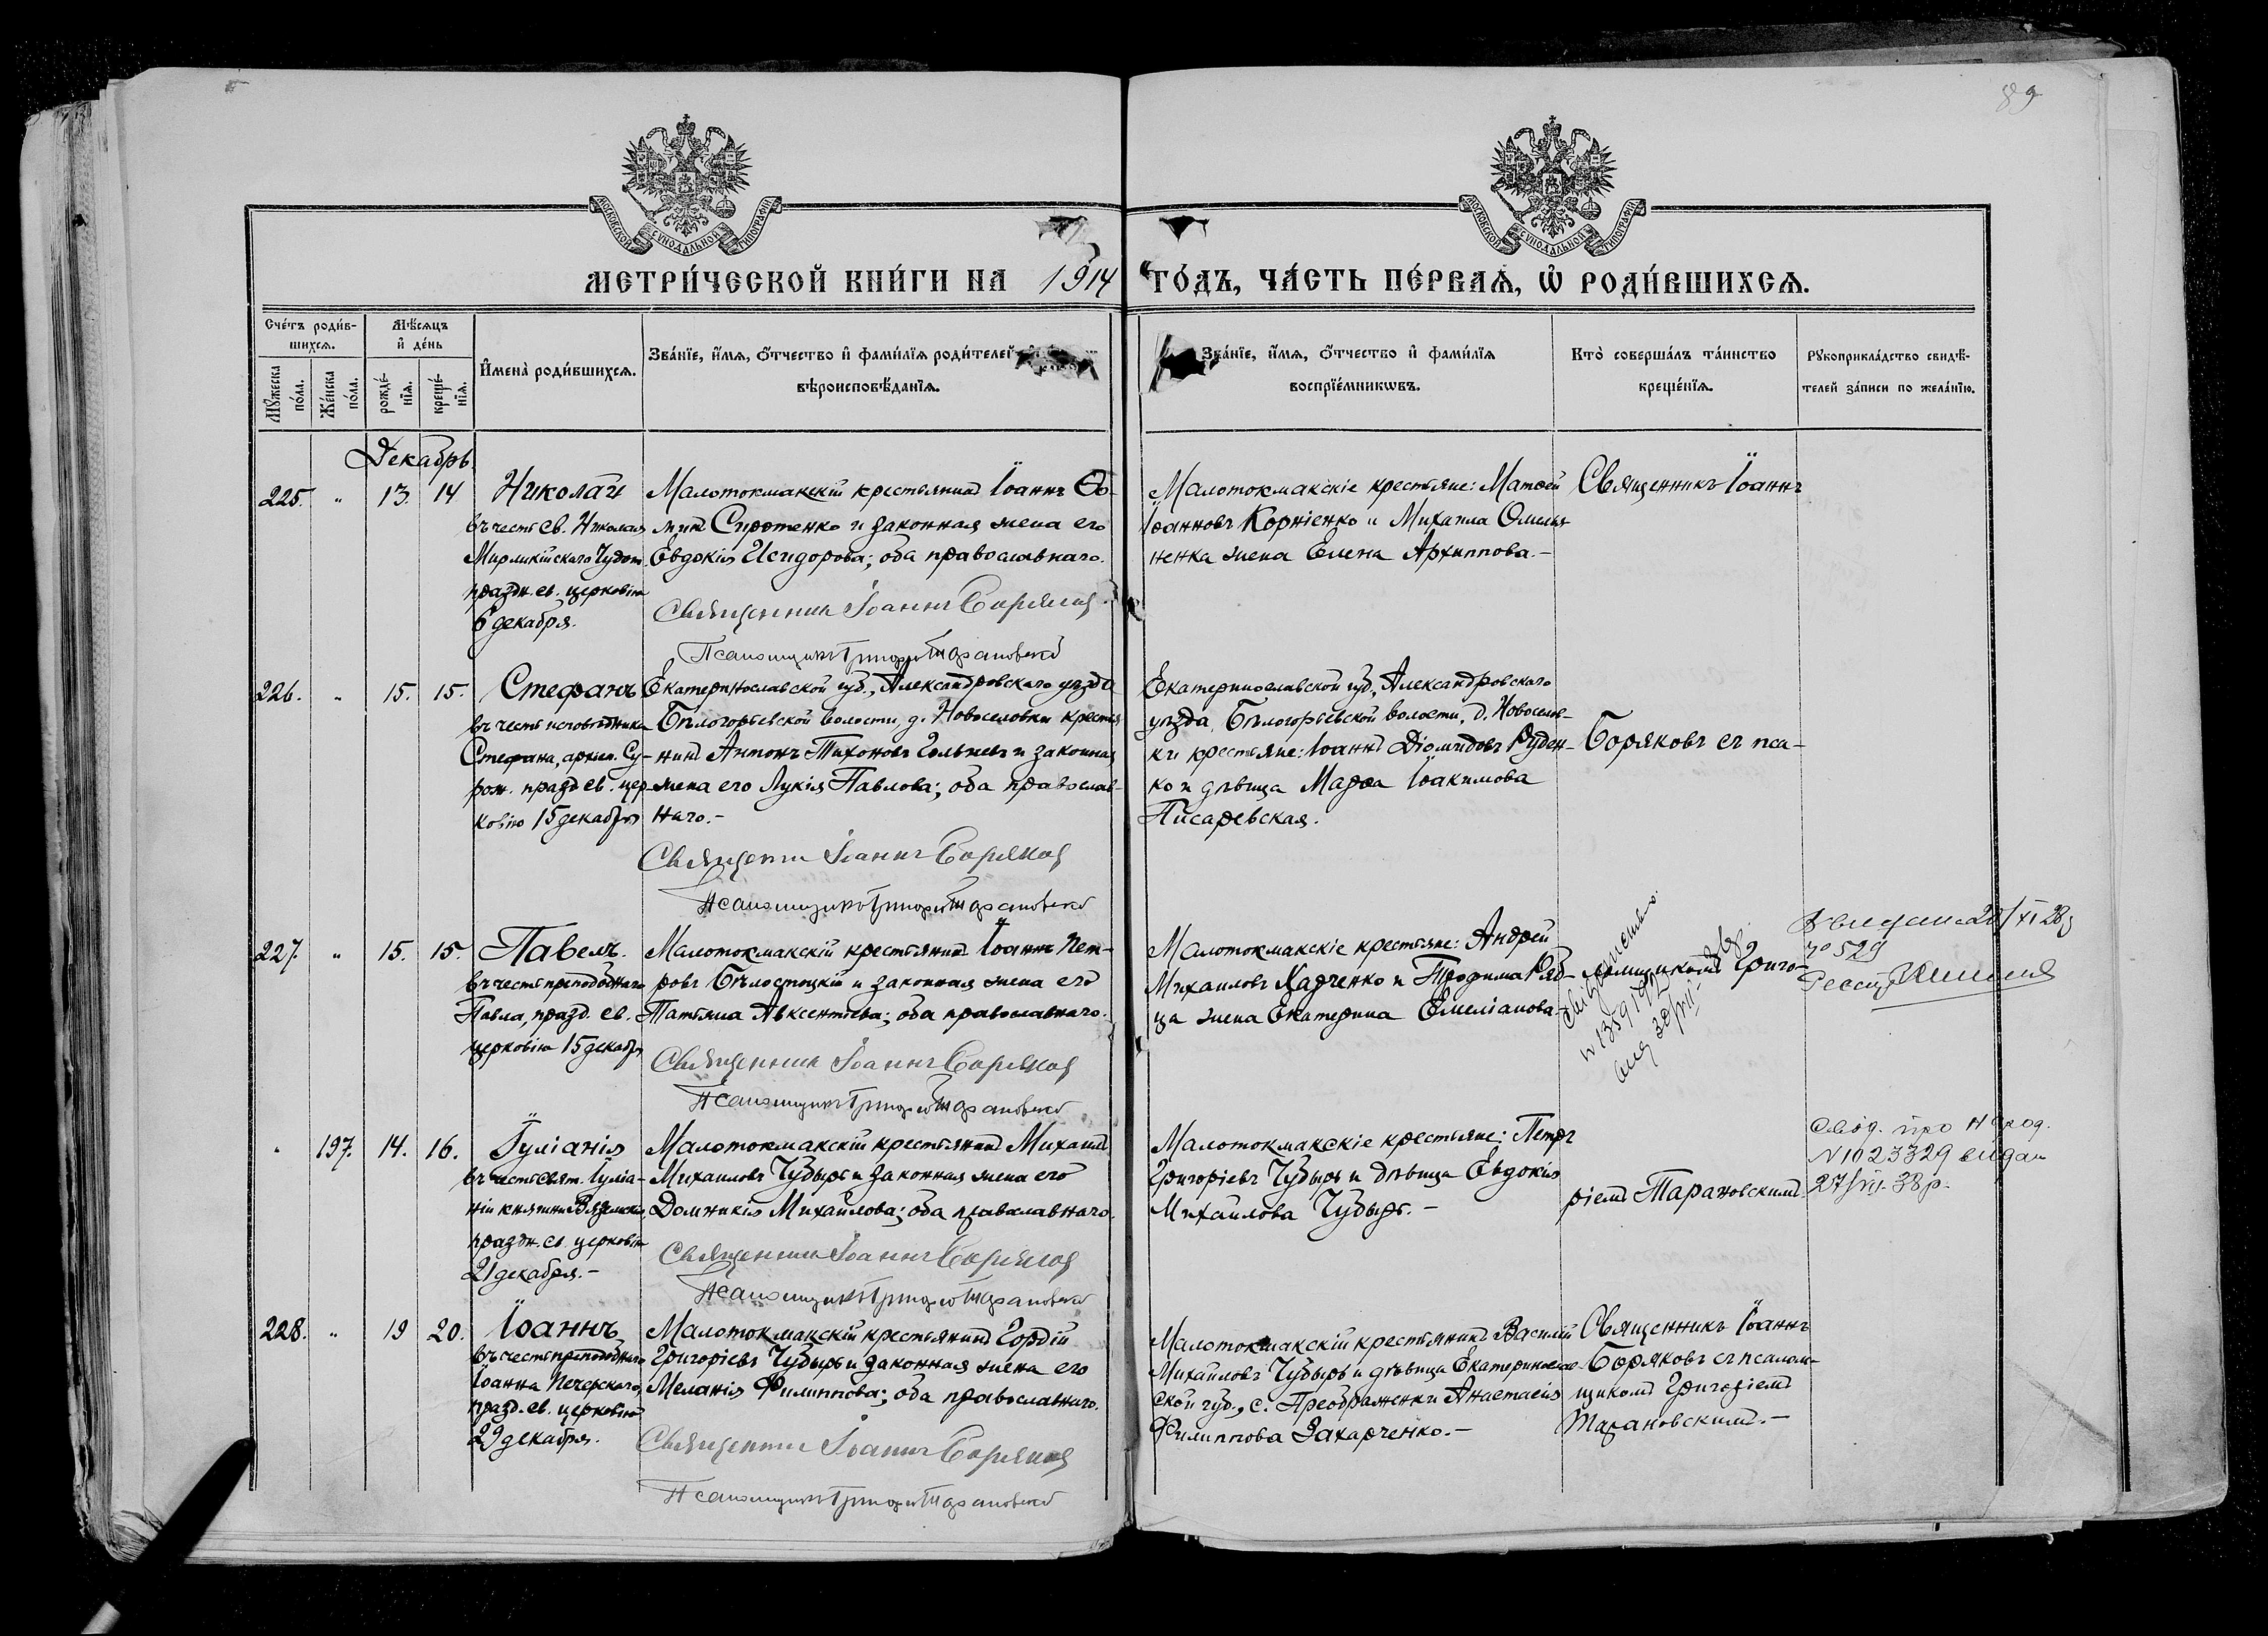 89
МОСКОВСКОЙ СѴНОДАЛЬНОЙ ТИПОГРАФІИ
МОСКОВСКОЙ СѴНОДАЛЬНОЙ ТИПОГРАФІИ
МЕТРИ́ЧЕСКОЙ КНИ́ГИ НА 1914 ГО́ДЪ, ЧА́СТЬ ПЕ́РВАѦ, Ѡ РОДИ́ВШИХСѦ.
Счетъ родив-
шихсѧ.
Мꙋжеска
пола.
Женска
пола.
Мѣсѧцъ
и день
рожде-
нїѧ.
креще-
нїѧ.
Имена родившихсѧ.
Званїе, имѧ, отчество и фамилїѧ родителей
вѣроисповѣданїѧ.
Званїе, имѧ, отчество и фамилїѧ
воспрїемникѡвъ.
Кто совершалъ таинство
крещенїѧ.
Рꙋкоприкладство свидѣ-
телей записи по желанїю.
Декабрь
225. " 13. 14
Николай
въ честь св. Николая
Мирликійскаго Чудот.
праздн. св. церковію
6 декабря.
Малотокмакскій крестьянинъ Іоаннъ Ѳо-
минъ Сиротенко и законная жена его
Евдокія Исидорова; оба православнаго.
Священникъ Іоаннъ Боряковъ
Псаломщикъ Григорій Тарановскій
Малотокмакскіе крестьяне: Матѳей
Іоанновъ Корніенко и Михаила Омелья
ненка жена Елена Архиппова.-
Священникъ Іоаннъ
226. " 15. 15.
Стефанъ
въ честь исповѣдника
Стефана, архіеп. Су-
рож. празд. св. цер-
ковію 15 декабря
Екатеринославской губ., Александровскаго уѣзда
Бѣлогорьевской волости, д. Новоселовки крестья
нинъ Антонъ Тихоновъ и законная
жена его Лукія Павлова; оба православ-
наго.-
Священникъ Іоаннъ Боряковъ
Псаломщикъ Григорій Тарановскій
Екатеринославской губ., Александровскаго
уѣзда, Бѣлогорьевской волости, д. Новоселов-
ки крестьяне: Іоаннъ Діомидовъ Руден-
ко и дѣвица Марѳа Іоакимова
Писаревская.
Боряковъ съ пса-
227. " 15. 15.
Павелъ.
въ честь преподобнаго
Павла, празд. св.
церковію 15 декабр
Малотокмакскій крестьянинъ Іоаннъ Пет-
ровъ Бѣлостоцкій и законная жена его
Татьяна Авксентіева; оба православнаго.
Священникъ Іоаннъ Боряковъ
Псаломщикъ Григорій Тарановскій
Малотокмакскіе крестьяне: Андрей
Михаиловъ Харченко и Трофима Ряб-
ца жена Екатерина Емеліанова-
ломщикомъ Григо-
20/XI 28
№ 529
" 197. 14. 16.
Іуліанія
въ честь свят. Іуліа-
ніи княгини Вяземск.
праздн. св. церковію
21 декабря.-
Малотокмакскій крестьянинъ Михаилъ
Михаиловъ Чубырь и законная жена его
Домникія Михайлова; оба православнаго.
Священникъ Іоаннъ Боряковъ
Псаломщикъ Григорій Тарановскій
Малотокмакскіе крестьяне: Петръ
Григоріевъ Чубырь и дѣвица Евдокія
Михаилова Чубырь.-
ріемъ Тарановскимъ.
Свід. про народ.
N 1023329 видан
27/VII-38р.
228. " 19 20.
Іоаннъ
въ честь преподобнаго
Іоанна Печерскаго,
празд. св. церковію
29 декабря.
Малотокмакскій крестьянинъ Гордій
Григоріевъ Чубырь и законная жена его
Меланія Филиппова; оба православнаго.
Священникъ Іоаннъ Боряковъ
Псаломщикъ Григорій Тарановскій
Малотокмакскій крестьянинъ Василій
Михайловъ Чубырь и дѣвица Екатеринослав
ской губ., с. Преображенки Анастасія
Филиппова Захарченко.-
Священникъ Іоаннъ
Боряковъ съ псалом-
щикомъ Григоріемъ
Тарановскимъ.-